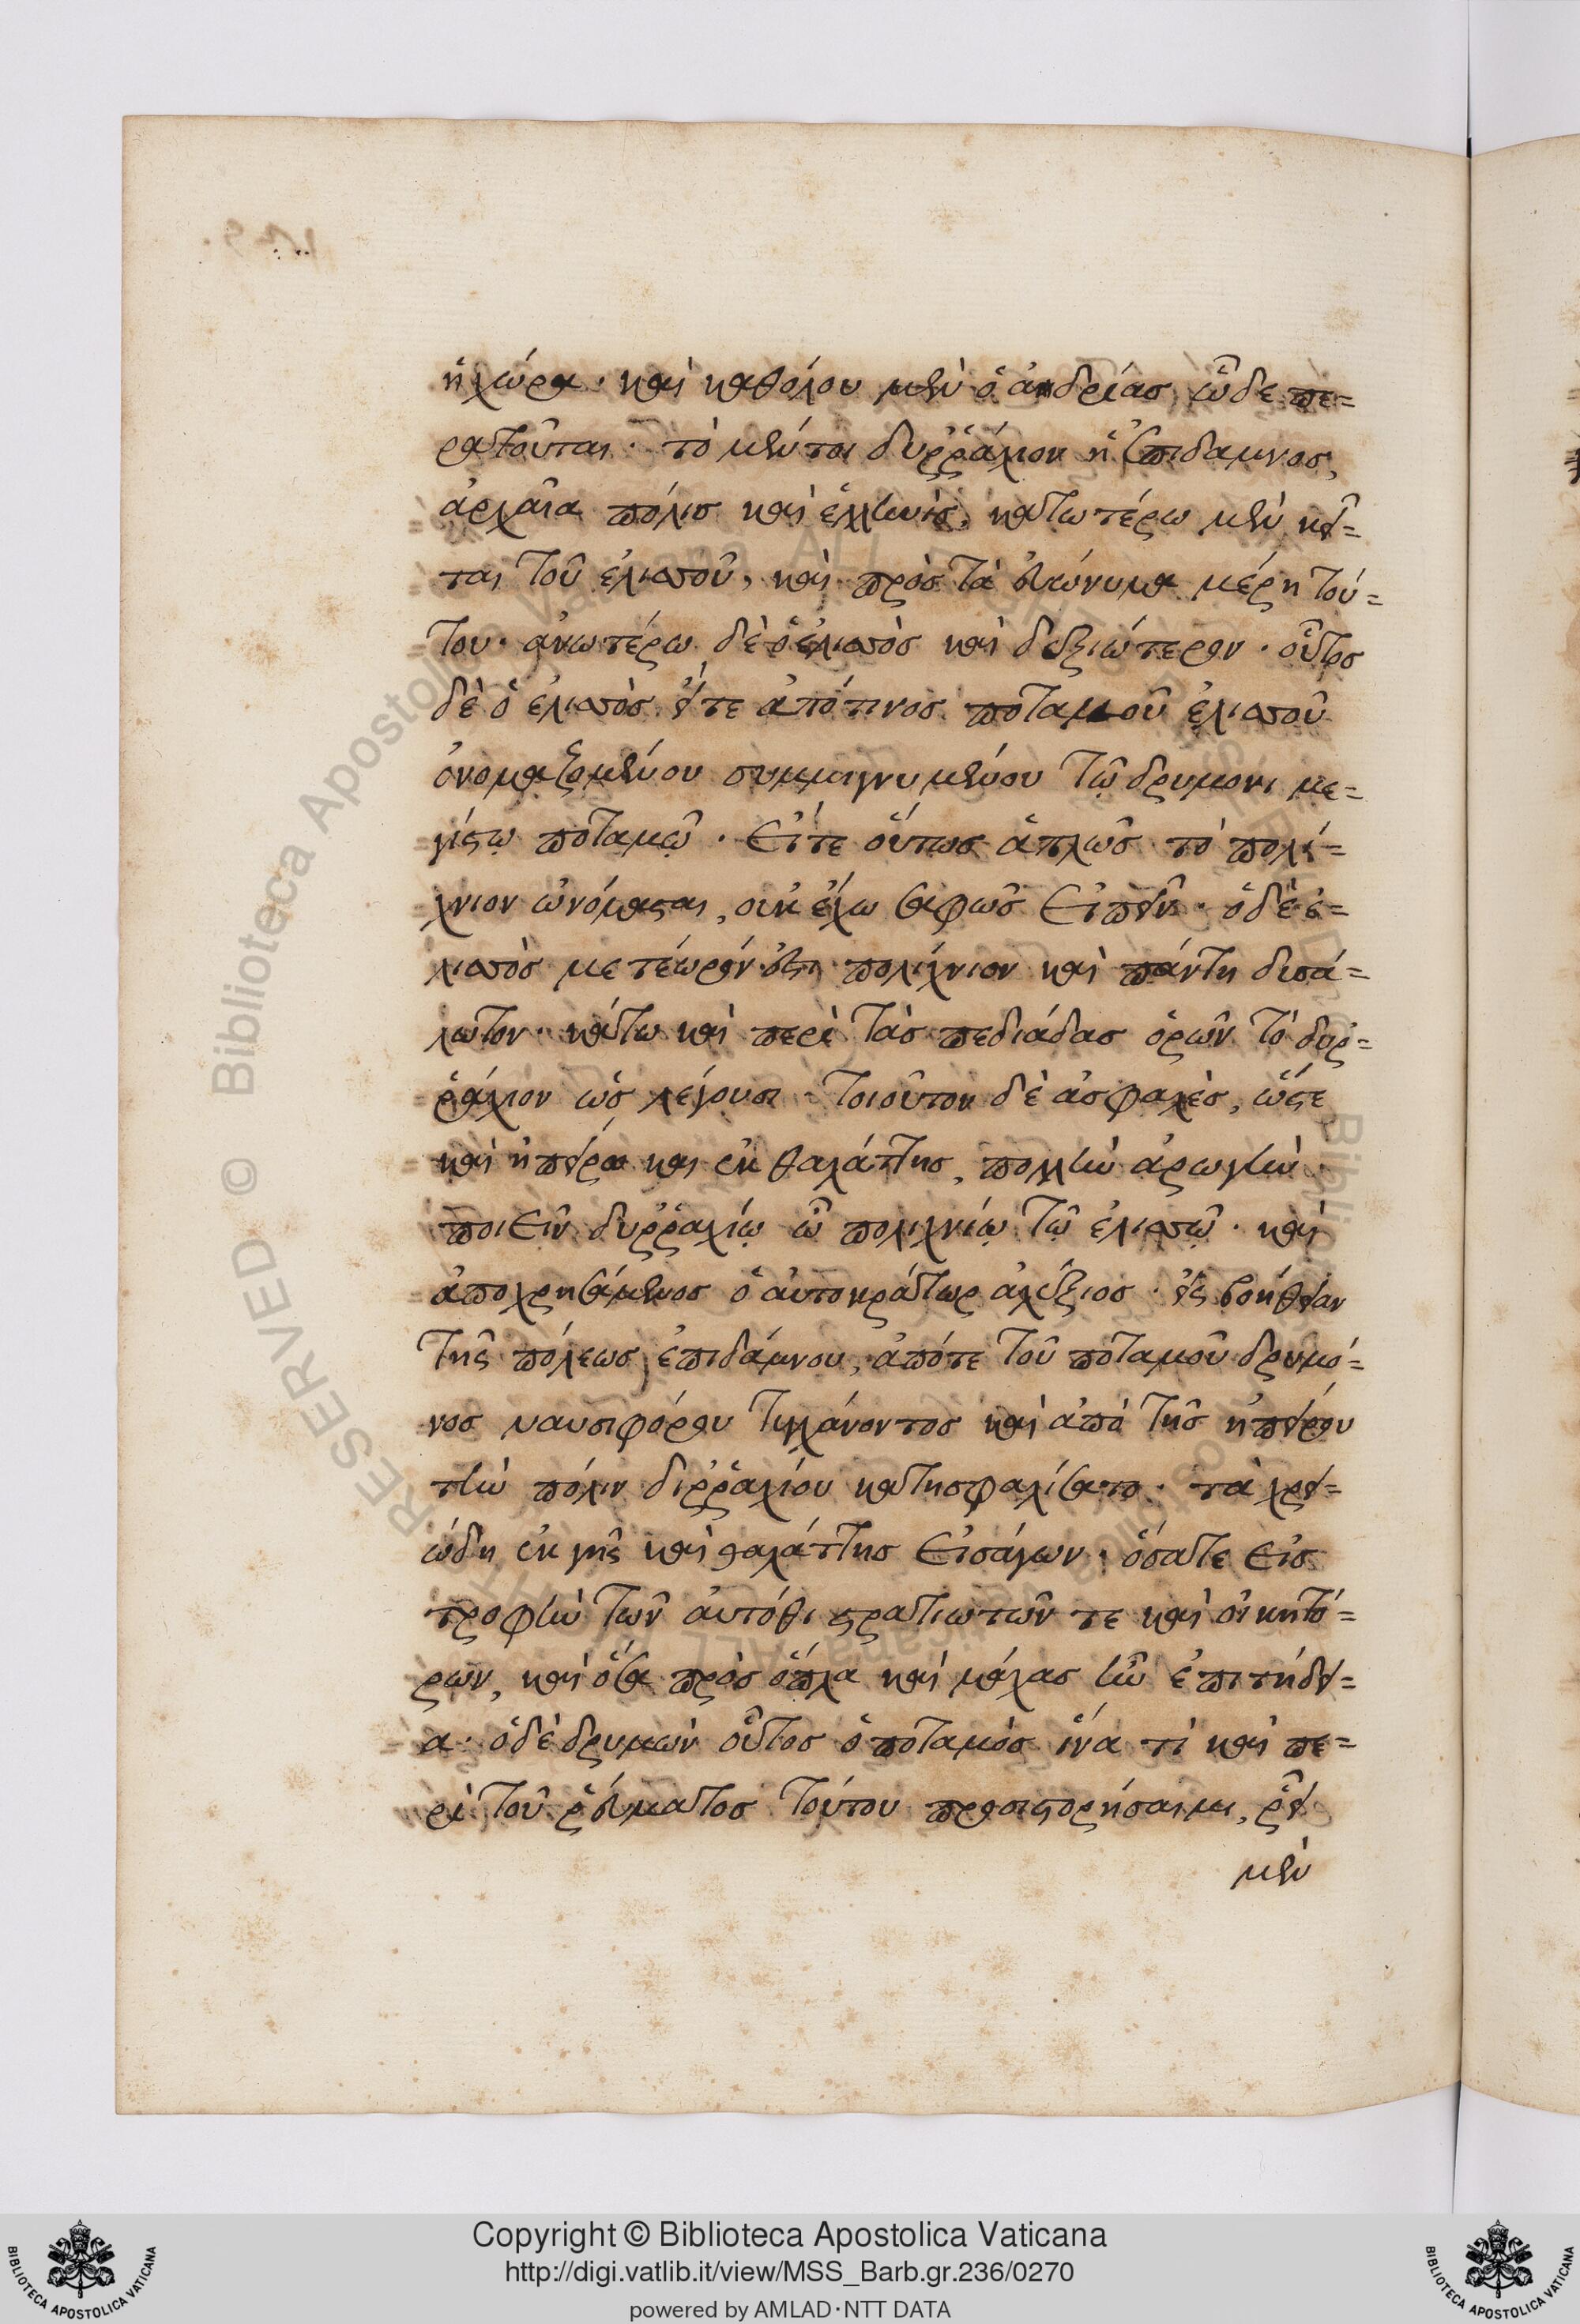 ἡ χώρα· καὶ καθόλου μὲν ὁ ἀνδρίας ὧδε πε=
ρατοῦται· τὸ μέντοι δυῤῥάχιον ἢ ἐπίδαμνος,
ἀρχαῖα πόλις καὶ ἑλληνὶς, κατωτέρω μὲν κεῖ=
ται τοῦ ἐλισσοῦ, καὶ πρὸς τὰ εὐώνυμα μέρη τού=
του· ἀνωτέρω δὲ ὁ ἐλισσὸς καὶ δεξιώτερον· οὗτος
δὲ ὁ ἐλισσὸς εἴτε ἀπό τινος ποταμοῦ ἐλισσοῦ
ὀνομαζομένου συμμιγνυμένου τῷ δρυμονι με=
γίστῳ ποταμῷ· εἴτε οὕτως ἁπλῶς τὸ πολί=
χνιον ὠνόμασται, οὐκ ἔχω σαφῶς εἰπεῖν· ὁ δὲ ἐ=
λισσὸς μετέωρόν ἐστι πολίχνιον καὶ πάντη δυσά=
λωτον· κάτω καὶ περὶ τὰς πεδιάδας ὁρῶν τὸ δυῤ=
ῥάχιον ὡς λέγουσι· τοιοῦτον δὲ ἀσφαλὲς, ὥστε
καὶ ἠπείρου καὶ ἐκ θαλάττης, πολλὴν ἀρωγὴν
ποιεῖν δυῤῥαχίῳ ὧ πολιχνίῳ τῷ ἐλισσῷ· καὶ
ἀποχρησάμενος ὁ αὐτοκράτωρ ἀλέξιος· εἰς βοήθειαν
τῆς πόλεως ἐπιδάμνου, ἀπότε τοῦ ποταμοῦ δρυμό=
νος ναυσιφόρου τυγχάνοντος καὶ ἀπὸ τῆς ἠπείρου
τὴν πόλιν διῤῥαχίου κατησφαλίσατο· τὰ χρει=
ώδη ἐκ γῆς καὶ θαλάττης εἰσάγων· ὅσατε εἰς
τροφὴν τῶν αὐτόθι στρατιωτῶν τε καὶ οἰκητό=
ρων, καὶ ὅσα πρὸς ὅπλα καὶ μάχας ἦν ἐπιτήδει=
α· ὁ δὲ δρυμὼν οὗτος ὁ ποταμὸς ἵνα τὶ καὶ πε=
ρὶ τοῦ ῥεύματος τούτου προσιστορήσαιμι, ῥεῖ
μὲν
Copyright © Biblioteca Apostolica Vaticana
http://digi.vatlib.it/view/MSS_Barb.gr.236/0270
powered by AMLAD·NTT DATA